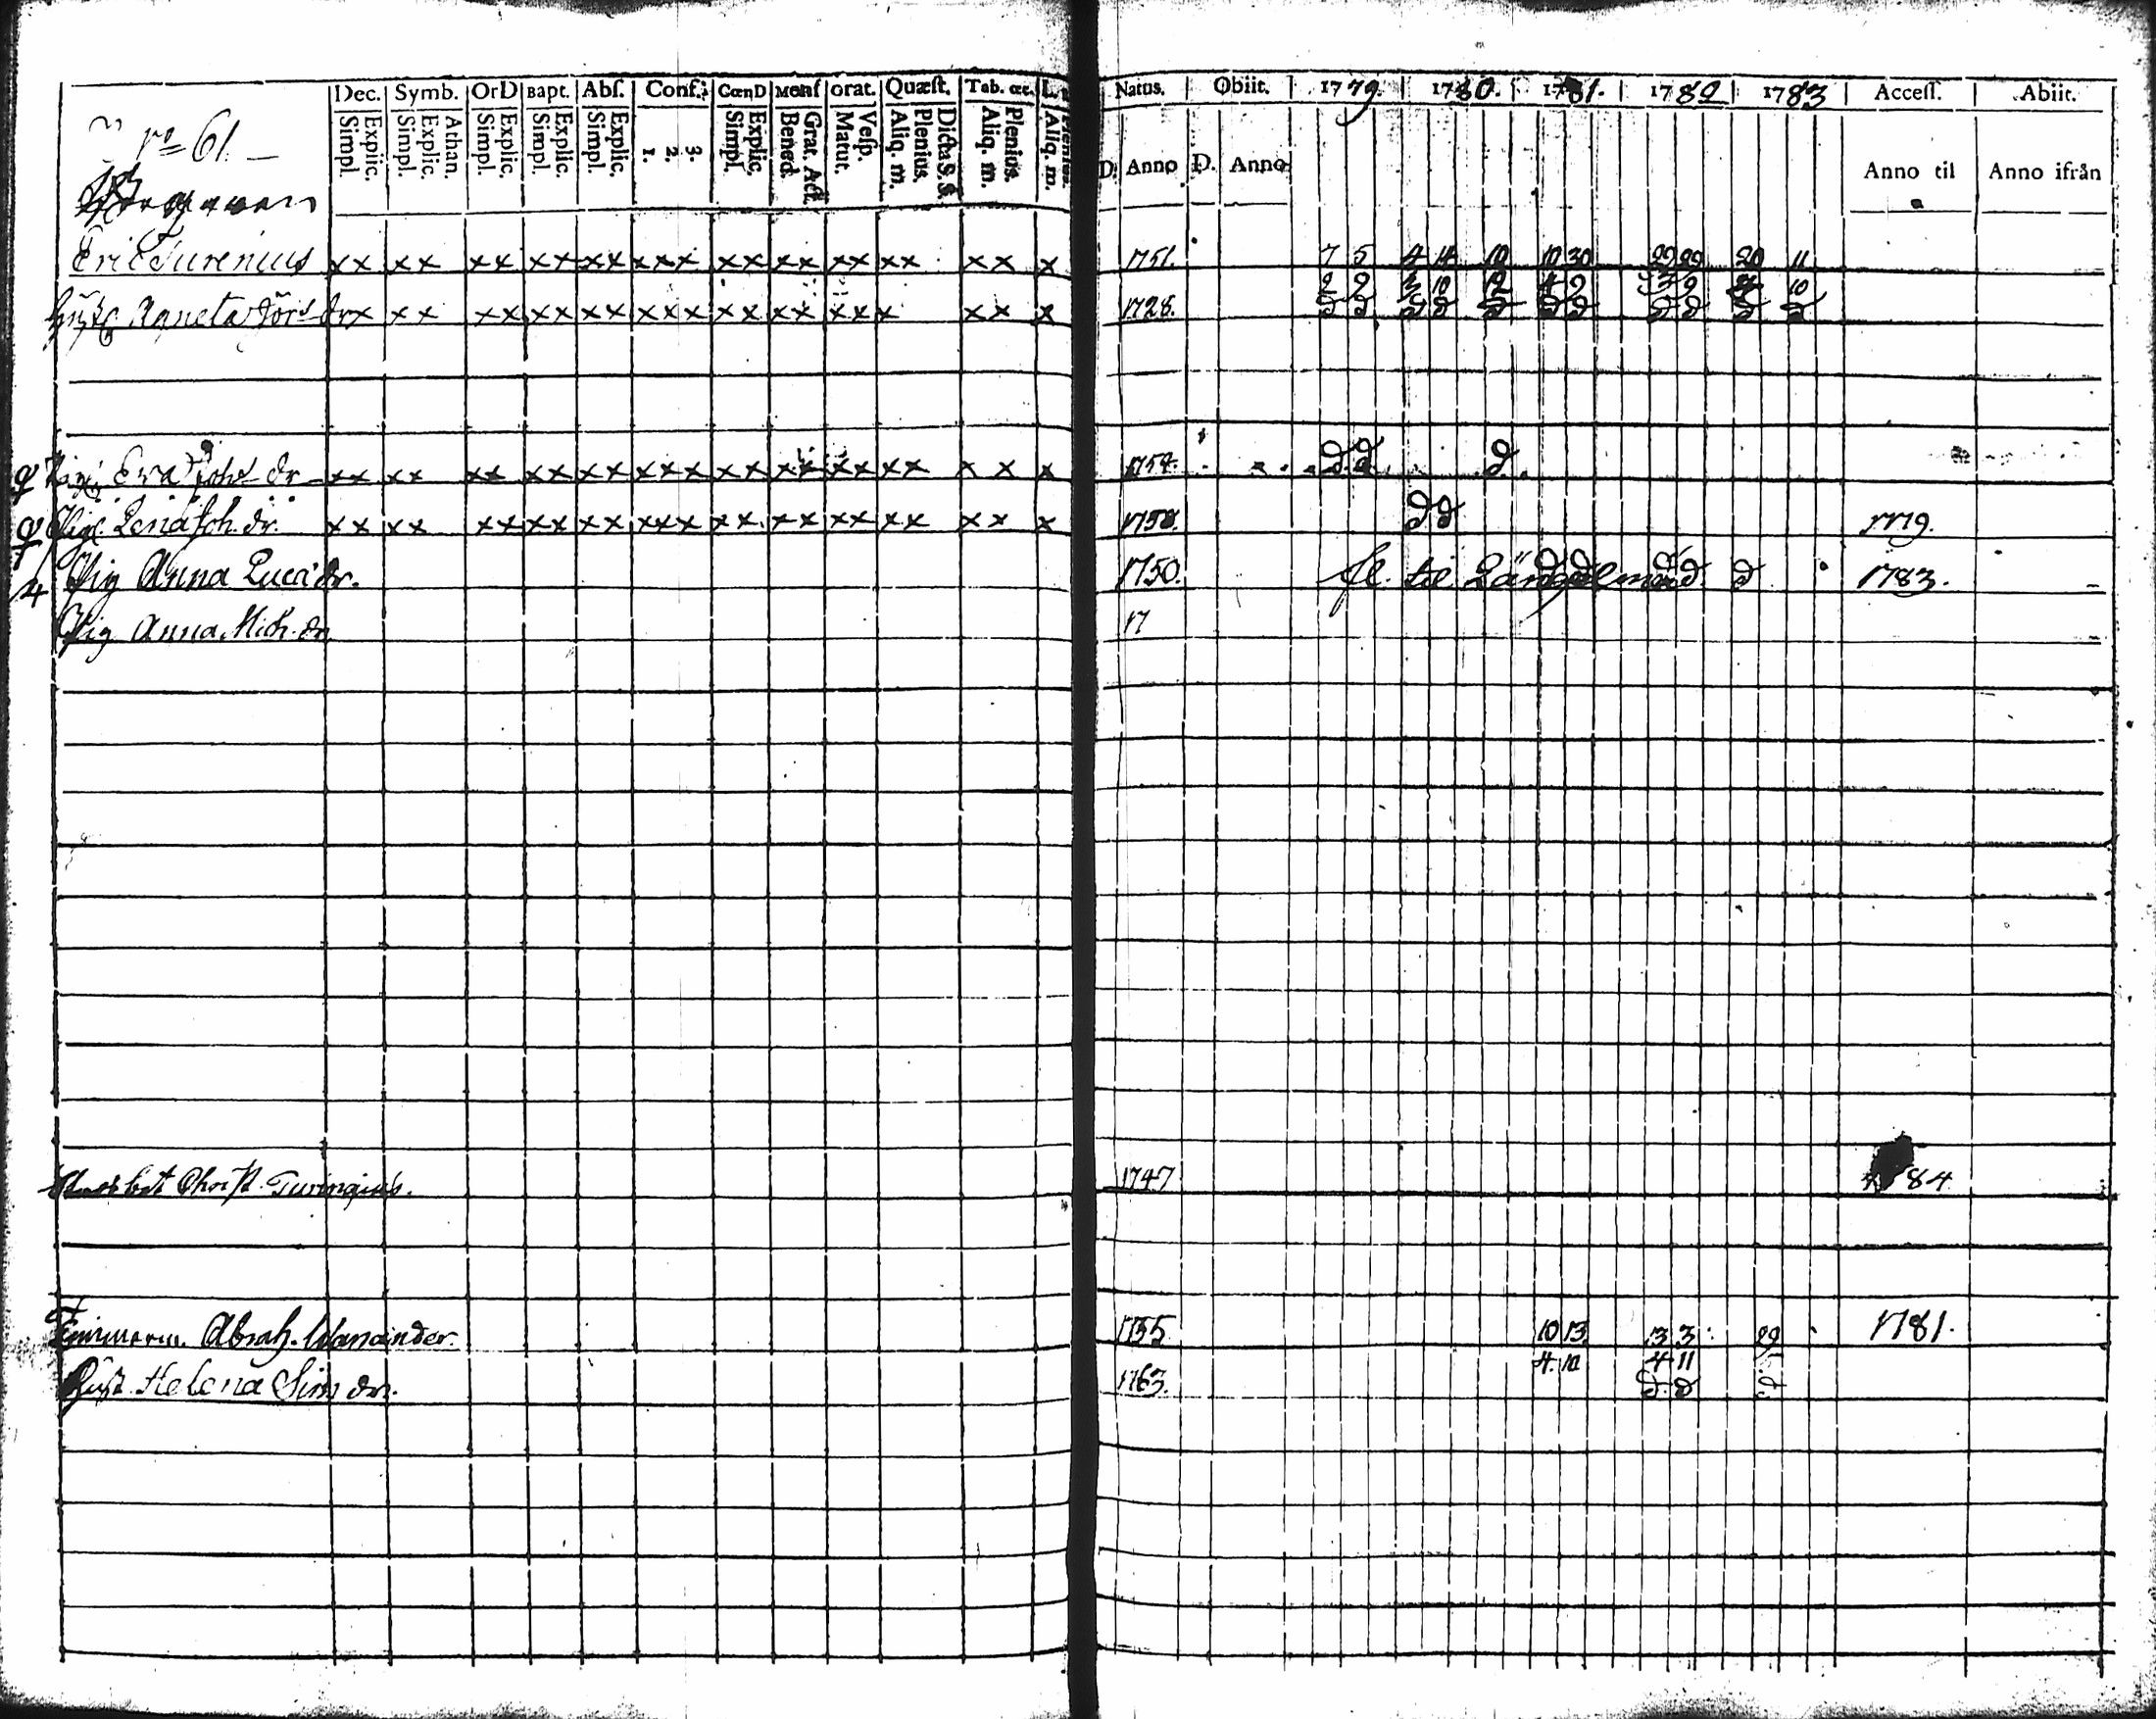 Dec. Symb. OrD Bapt. Abſ. Conf. CœnD Menſ Orat. Quæſt. Tab. œc. Natus. Obiit. 1779. 1780. 1781. 1782 1783 Acceſſ. Abiit.
Explic. Simpl. Athan. Explic. Simpl. Explic. Simpl. Explic. Simpl. Explic. Simpl. 3. 2. 1. Explic. Simpl. Grat. Act. Bened. Veſp. Matut. Dicta S. S. Plenius. Aliq. m. Plenius. Aliq. m. Plenius. Aliq. m. D. Anno D. Anno Anno til Anno ifrån
No 61
Eric Turenius xx xx xx xx xx xxx xx xx xx xx xx x 1751. 7 5 4 14 10 10 30 29 29 20 11
2 2 3 10 12 4 2 3 2 10
Agneta dr x xx xx xx xx xxx xx xx xx x xx x 1728. D D D D D D D D D D D
Eva Joh dr xx xx xx xx xx xxx xx xx xx xx x x x 1754. D D D
Pig. Lena Joh. dr. xx xx xx xx xx xxx xx xx xx xx xx x 1758. D D 1779.
4 Pig Anna Luca dr. 1750. fl. til Längelmäd D 1783.
Pig Anna Mich. dr 17
Christ. Turingius. 1747 84
Abrah. Wanainder. 1755 10 13 13 3 29 1781.
4. 10 4 11
Hust. Helena Sim dr. 1763. D. D D